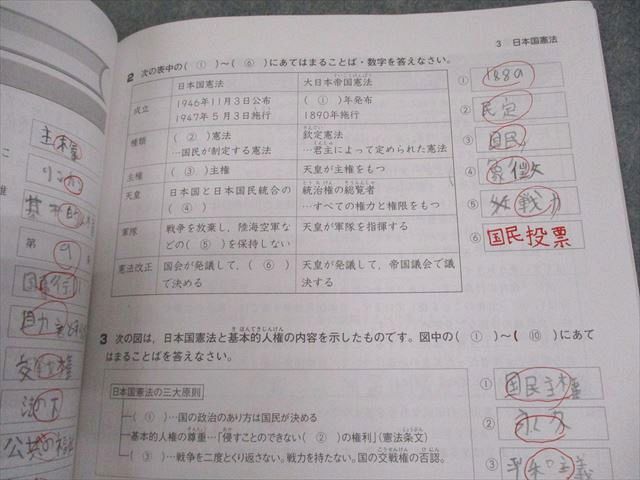 3 日本国憲法
2 次の表中の( ① )~( ⑥ )にあてはまることば・数字を答えなさい。
日本国憲法 大日本帝国憲法
成立 1946年11月3日公布 ( ① )年発布
1947年5月3日施行 1890年施行
種類 ( ② )憲法 欽定憲法
…国民が制定する憲法 …君主によって定められた憲法
主権 ( ③ )主権 天皇が主権をもつ
天皇 日本国と日本国民統合の 統治権の総覧者
( ④ ) …すべての権力と権限をもつ
軍隊 戦争を放棄し,陸海空軍な 天皇が軍隊を指揮する
どの( ⑤ )を保持しない
憲法改正 国会が発議して,( ⑥ ) 天皇が発議して,帝国議会で議
で決める 決する
① 1889
② 民定
③ 国民
④ 象徴
⑤ 戦力
⑥ 国民投票
3 次の図は,日本国憲法と基本的人権の内容を示したものです。図中の( ① )~( ⑩ )にあて
はまることばを答えなさい。
日本国憲法の三大原則
( ① )…国の政治のあり方は国民が決める
基本的人権の尊重…「侵すことのできない( ② )の権利」(憲法条文)
( ③ )…戦争を二度とくり返さない。戦力を持たない。国の交戦権の否認。
① 国民主権
② 永久
③ 平和主義
主権
第 9
交戦権
法の下